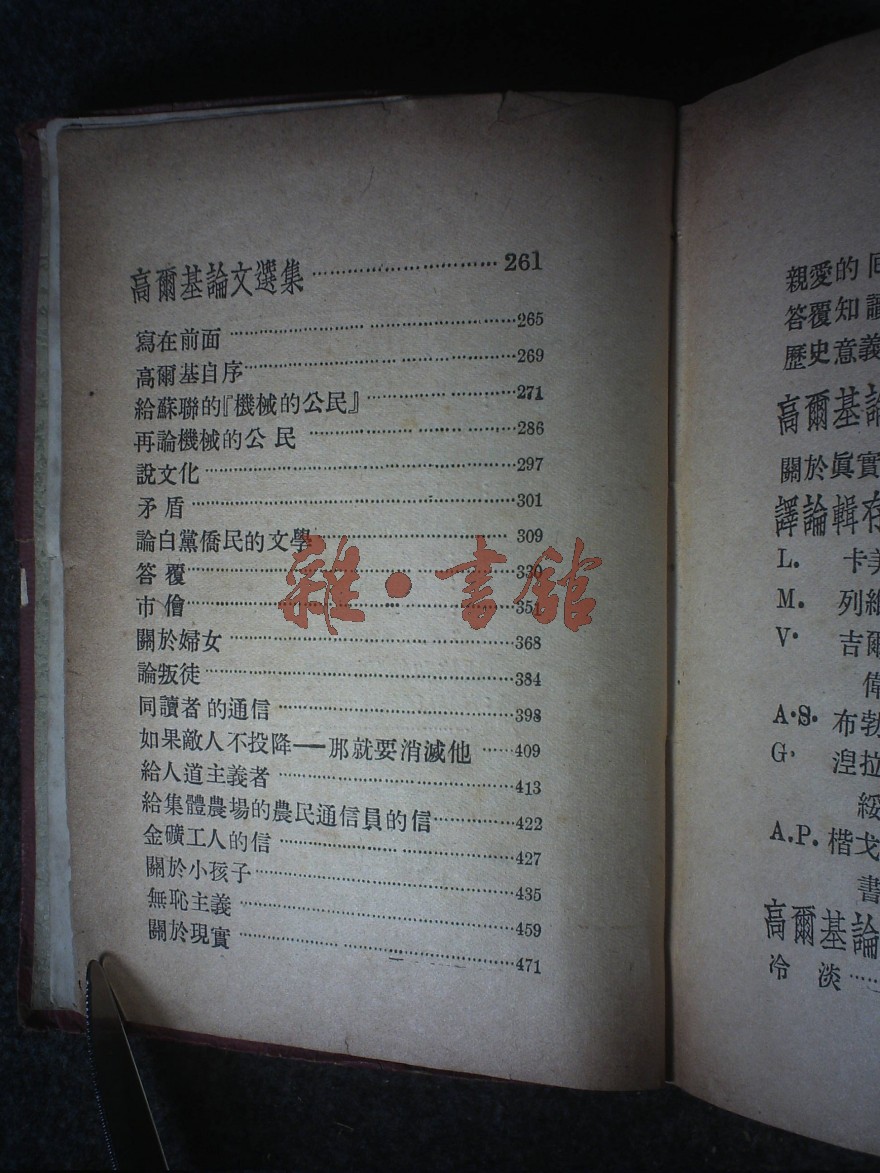 高爾基論文選集 261
寫在前面 265
高爾基自序 269
給蘇聯的『機械的公民』 271
再論機械的公民 286
說文化 297
矛盾 301
論白黨僑民的文學 309
答覆 330
市儈 351
關於婦女 368
論叛徒 384
同讀者的通信 398
如果敵人不投降——那就要消滅他 409
給人道主義者 413
給集體農場的農民通信員的信 422
金礦工人的信 427
關於小孩子 435
無恥主義 459
關於現實 471
雜·書館
親愛的
答覆知讀
歷史意義
高爾基論
關於眞實
譯論輯存
L. 卡美
M. 列維
V. 吉爾
偉
A.S. 布勃
G. 湼拉
綏
A.P. 楷戈
書
高爾基論
冷淡